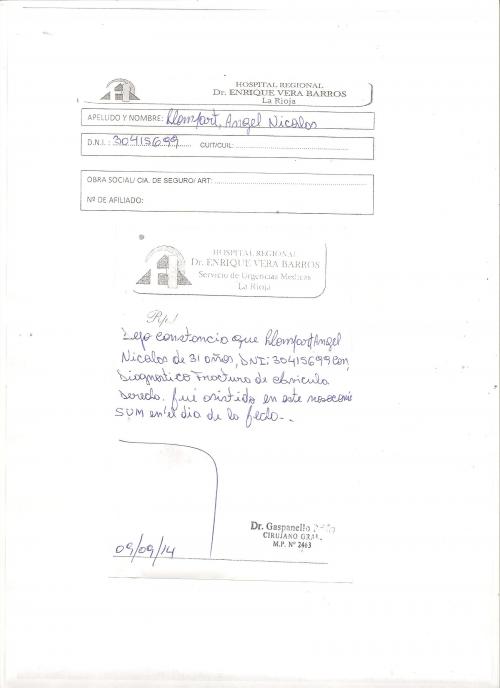 HOSPITAL REGIONAL
Dr. ENRIQUE VERA BARROS
La Rioja
APELLIDO Y NOMBRE: Llompart, Angel Nicolas
D.N.I. : 30415699 CUIT/CUIL:
OBRA SOCIAL/ CIA. DE SEGURO/ ART:
Nº DE AFILIADO:
HOSPITAL REGIONAL
Dr. ENRIQUE VERA BARROS
Servicio de Urgencias Medicas
La Rioja
Rp/
Dejo constancia que Llompart Angel
Nicolas de 31 años, DNI: 30415699 con
Diagnostico Fractura de clavicula
Derecha. fué asistido en este
SUM en el dia de la fecha.-
Dr. Gaspanello
CIRUJANO GRAL.
M.P. Nº 2463
09/09/14